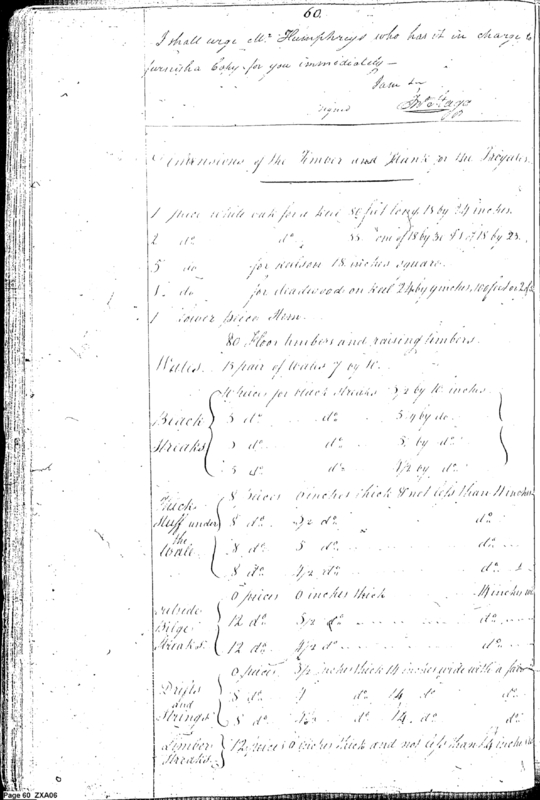 60.
I shall urge Mr. Humphreys who has it in charge to
furnish a Copy for you immediately —
I am Sir
Signed
Dimensions of the Timber and Plank for the Frigates.
1 piece white oak for a keel 80 feet long, 18 by 24 inches.
2 do. do. 55 " one of 18 by 30 & 1 of 18 by 23.
5 do for keelson 18 inches square.
1 do for deadwood on keel 24 by inches,
1 lower peice Stem.
80 Floor timbers and raising timbers.
Wales. 15 pair of Wales 7 by 10.
10 pieces for black streaks 5 1/2 by 10 inches
Black 5 do do by do.
Streaks 5 do. do. by do.
5 do do 4 1/2 by do.
Thick 8 pieces 6 inches thick & not less than 11 inches
Stuff under 8 do. 5 1/2 do. do.
the 8 do. 5 do. do.
Wale 8 do. 4 1/2 do.
6 pieces 6 inches thick 14 inches
outside 12 do. 5 1/2 do. do.
Bilge
Streaks 12 do. 4 1/2 do. do.
6 pieces inches thick 14 inches wide with a
Drifts 8 do. do 14 do do.
and
Strings 8 do. 4 1/2 do 14 do. do
Limber 12 pieces 6 inches thick and not less than 14 inches
Streaks
Page 60 ZXA06